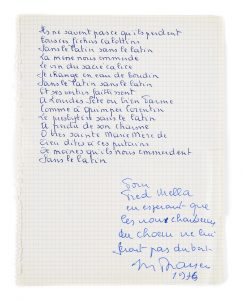 Ils ne savent pas ce qu'ils perdent
Tous ces fichus calottins
Sans le latin sans le latin
La messe nous emmerde
Le vin du sacré calice
Se change en eau de boudin
Sans le latin sans le latin
Et ses vertus faiblissent
A Lourdes Sète ou bien Parme
Comme à Quimper Corentin
Le presbytère sans le latin
A perdu de son charme
O très sainte Marie Mère de
Dieu dites à ces putains
De moines qu'ils nous emmerdent
Sans le latin
Pour
Fred Mella
en espérant que
les
du choeur ne lui
feront pas du
1976